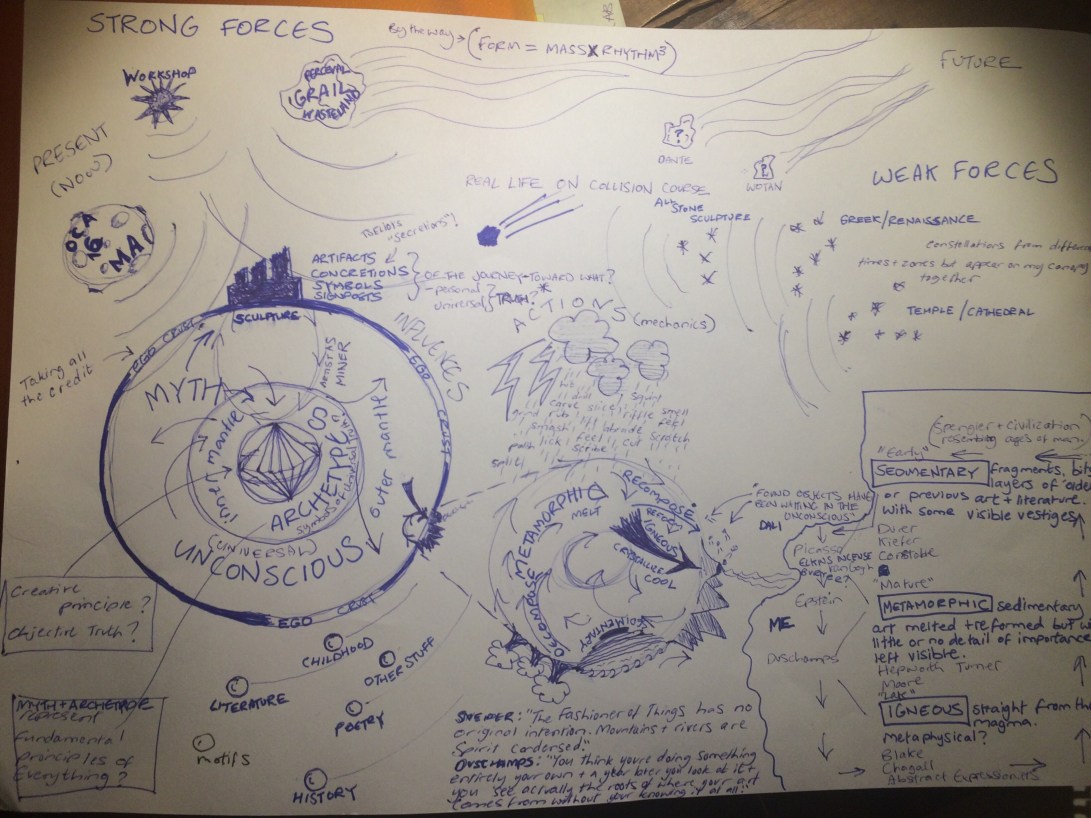 STRONG FORCES
By the way → (FORM = MASS X RHYTHM³)
FUTURE
WORKSHOP
PERCEVAL
GRAIL
WASTELAND
PRESENT
(NOW)
?
DANTE
?
WOTAN
WEAK FORCES
REAL LIFE ON COLLISION COURSE
ALL
STONE
SCULPTURE
GREEK/RENAISSANCE
constellations from different
times + zones but appear on my canopy
together
TEMPLE/CATHEDRAL
OCA
MA
"secretions"?
ARTIFACTS
CONCRETIONS
SYMBOLS
SIGNPOSTS
OF THE JOURNEY-TOWARD WHAT?
-personal?
universal TRUTH
SCULPTURE
ACTIONS (mechanics)
INFLUENCES
EGO CRUST
Taking all
the credit
ARTIST AS
MINER
MYTH
inner mantle
outer mantle
ARCHETYPE
symbols of universal truth
(UNIVERSAL)
UNCONSCIOUS
EGO CRUST
EGO CRUST
hit squirt
carve slice smell
grind rub feel
smash
push lick feel cut scratch
split scribe
METAMORPHIC
MELT
RECOMPOSE
IGNEOUS
CRYSTALLISE
COOL
DECOMPOSE
SEDIMENTARY
"FOUND OBJECTS HAVE
BEEN WAITING IN THE
UNCONSCIOUS"
DALI
Picasso
Epstein
ME
Duschamps
Spengler + Civilization
resembling ages of man
"Early"
SEDIMENTARY fragments, bits
layers of older
or previous art + literature
with some visible vestiges
Durer
Kiefer
"Mature"
METAMORPHIC sedimentary
art melted + reformed but with
little or no detail of importance
left visible.
Hepworth Turner
Moore
IGNEOUS straight from the
magma.
metaphysical?
Blake
Chagall
Abstract Expressionists
Creative
principle?
Objective Truth?
MYTH + ARCHETYPE
represent
fundamental
principles of
Everything?
CHILDHOOD
OTHER STUFF
LITERATURE
POETRY
motifs
HISTORY
"The Fashioner of Things has no
original intention. Mountains + rivers are
Spirit condensed."
DUSCHAMPS: "You think you're doing something
entirely your own + a year later you look at it +
you see actually the roots of where your art
comes from without your knowing it at all."